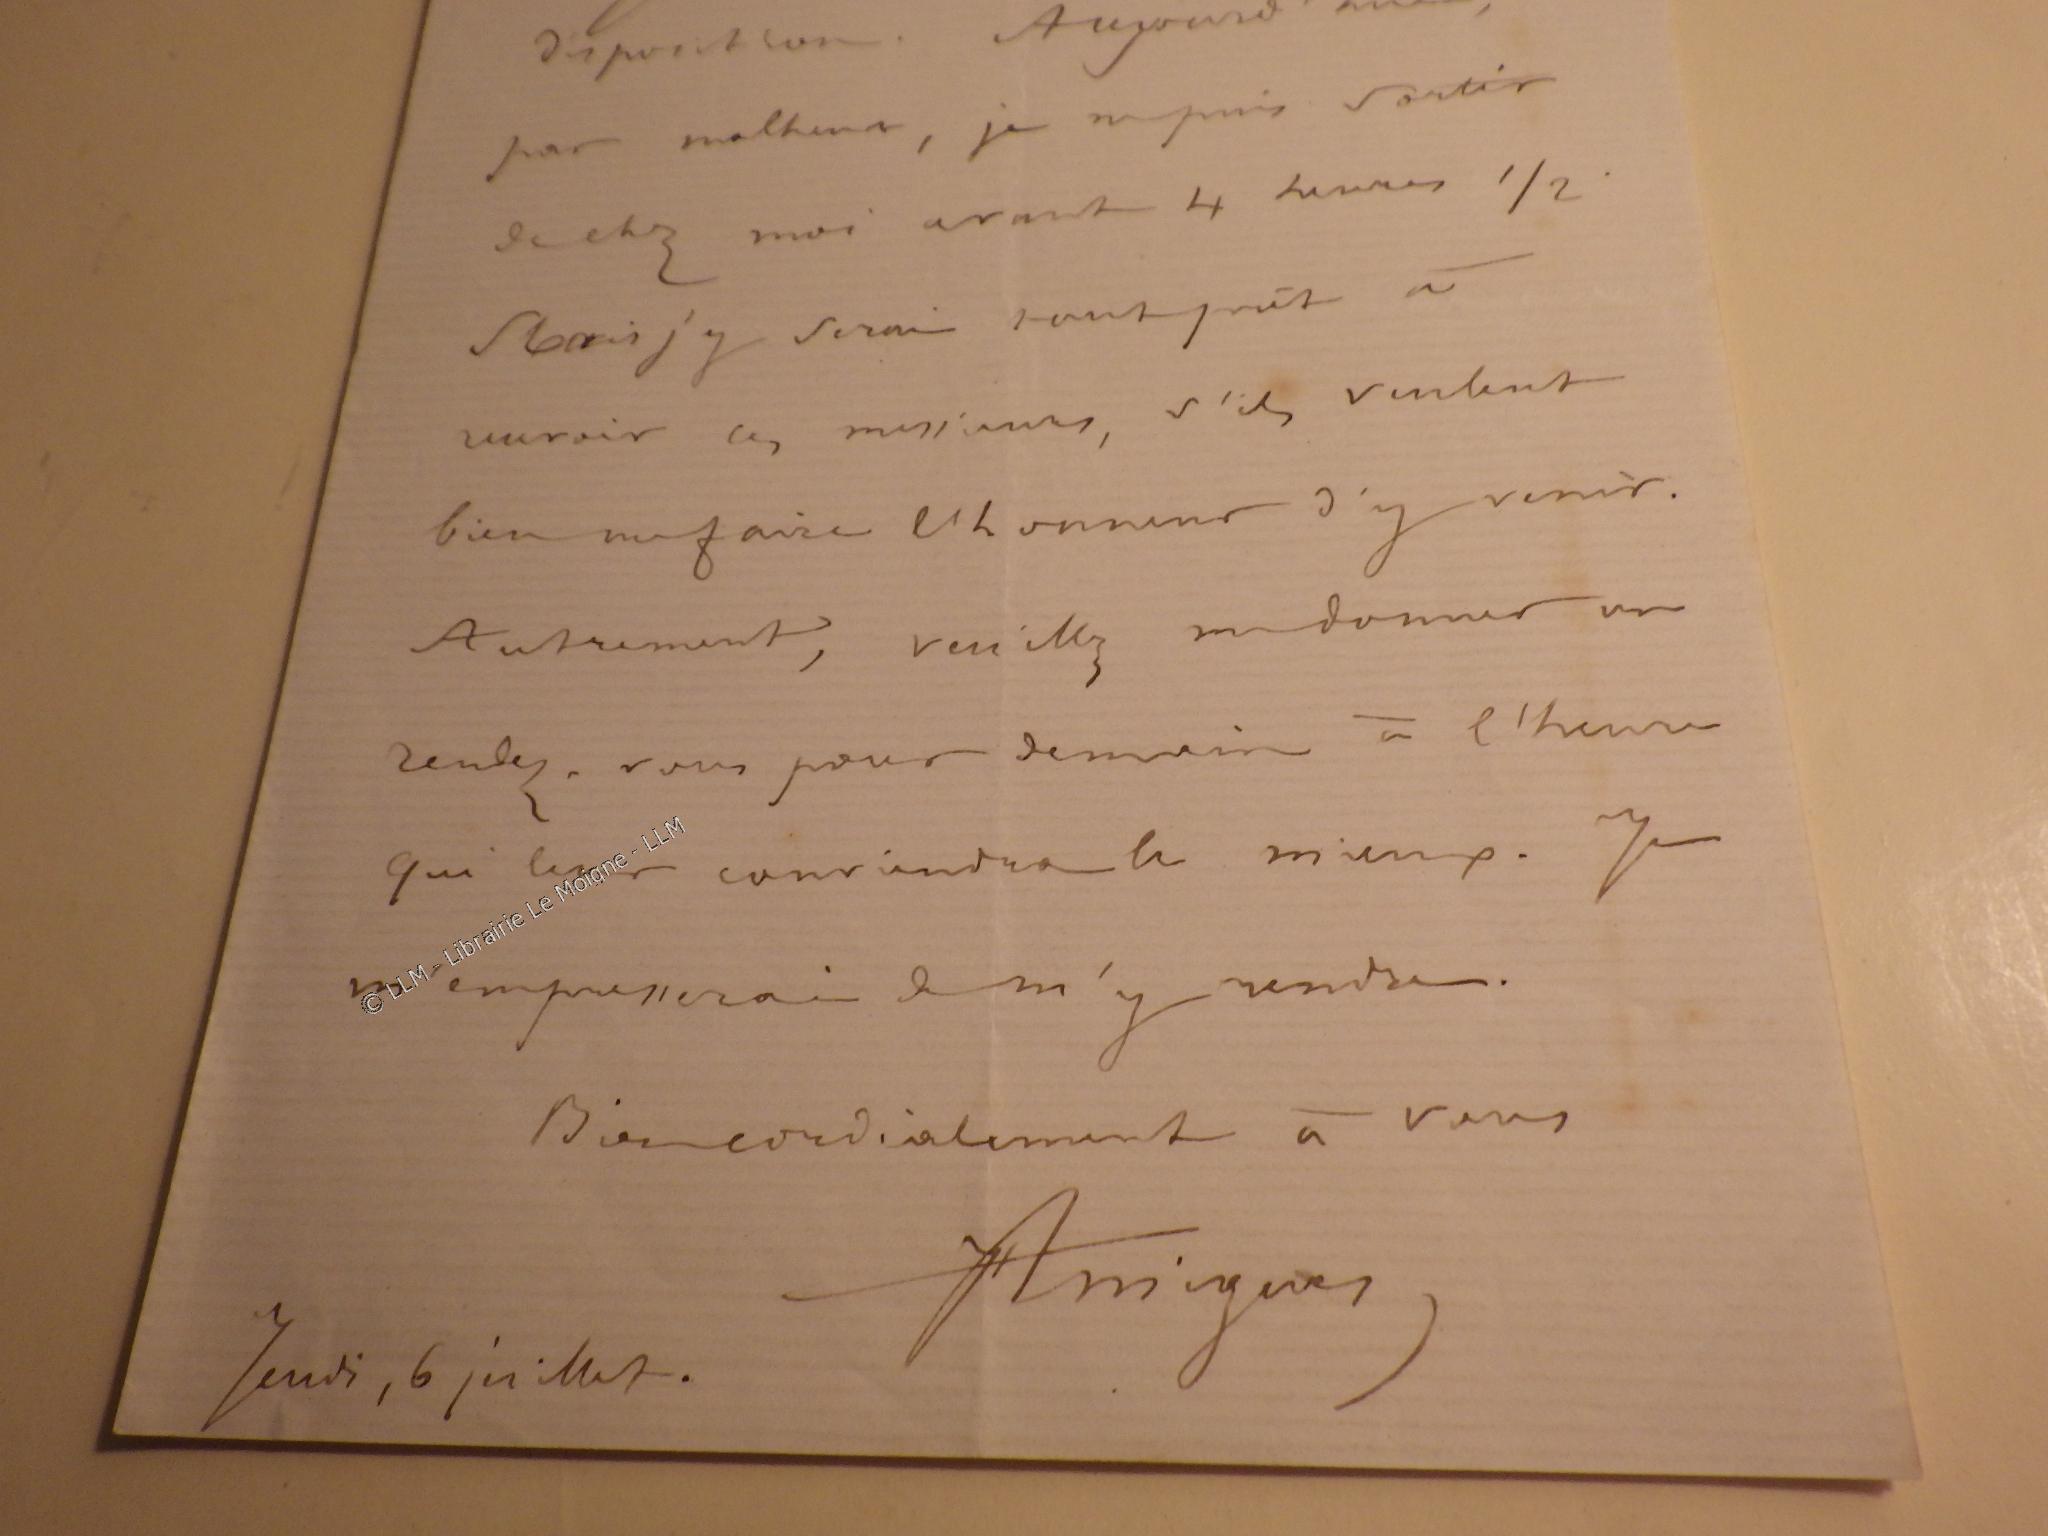 disposition. Aujourd'hui,
par malheur, je ne puis sortir
de chez moi avant 4 heures 1/2.
Mais j'y serai tout prêt à
recevoir ces messieurs, s'ils veulent
bien me faire l'honneur d'y venir.
Autrement, veuillez me donner un
rendez-vous pour demain à l'heure
qui leur conviendra le mieux. Je
m'empresserai de m'y rendre.
Bien cordialement à vous
J Amigues
Jeudi, 6 juillet.
© LLM - Librairie Le Moigne - LLM